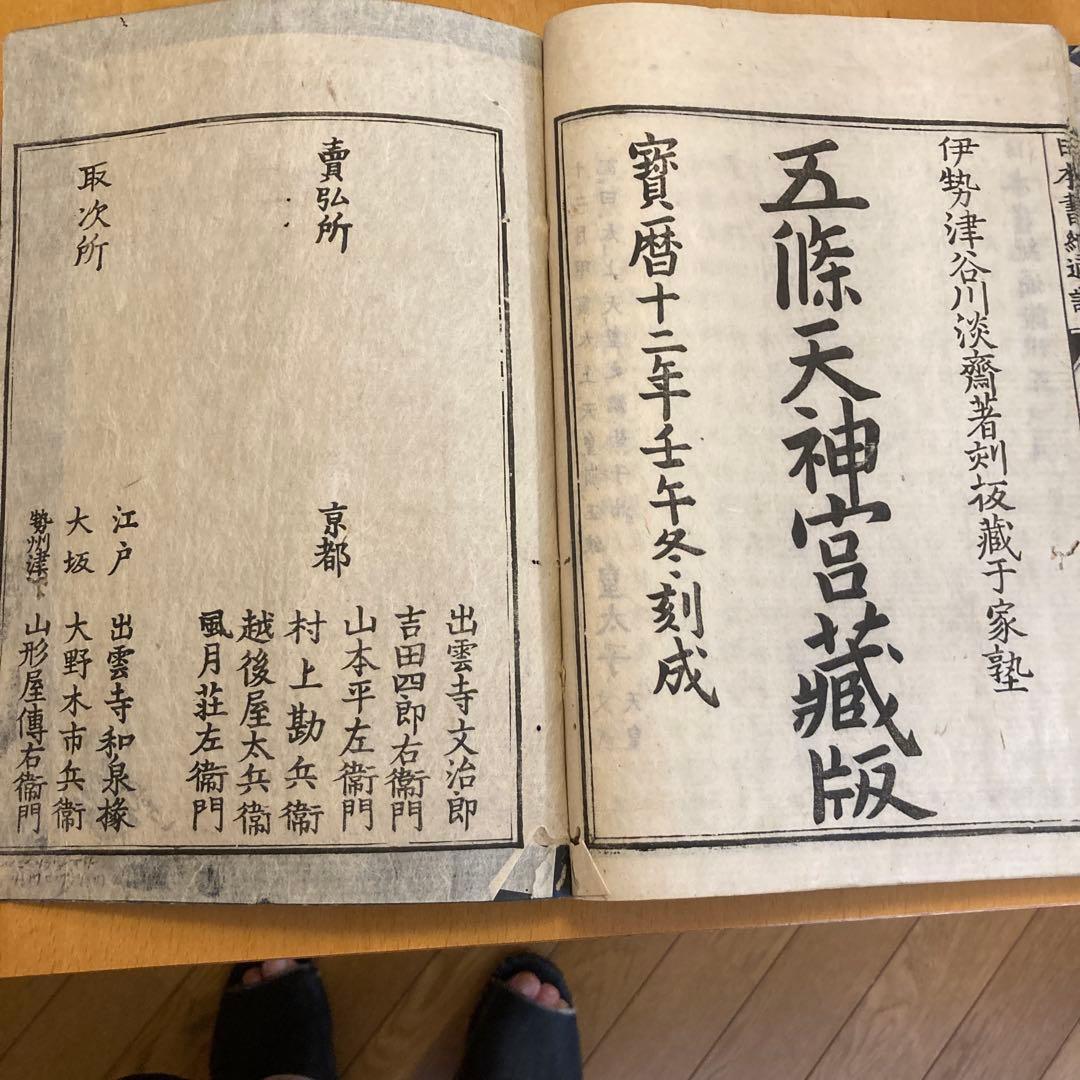 日本書紀通證
伊勢津谷川淡齋著刻板藏于家塾
五條天神宮藏版
寶暦十二年壬午冬刻成
賣弘所
京都
出雲寺文治郎
吉田四郎右衞門
山本平左衞門
村上勘兵衞
越後屋太兵衞
風月莊左衞門
取次所
江戸
出雲寺和泉掾
大坂
大野木市兵衞
勢州津
山形屋傳右衞門